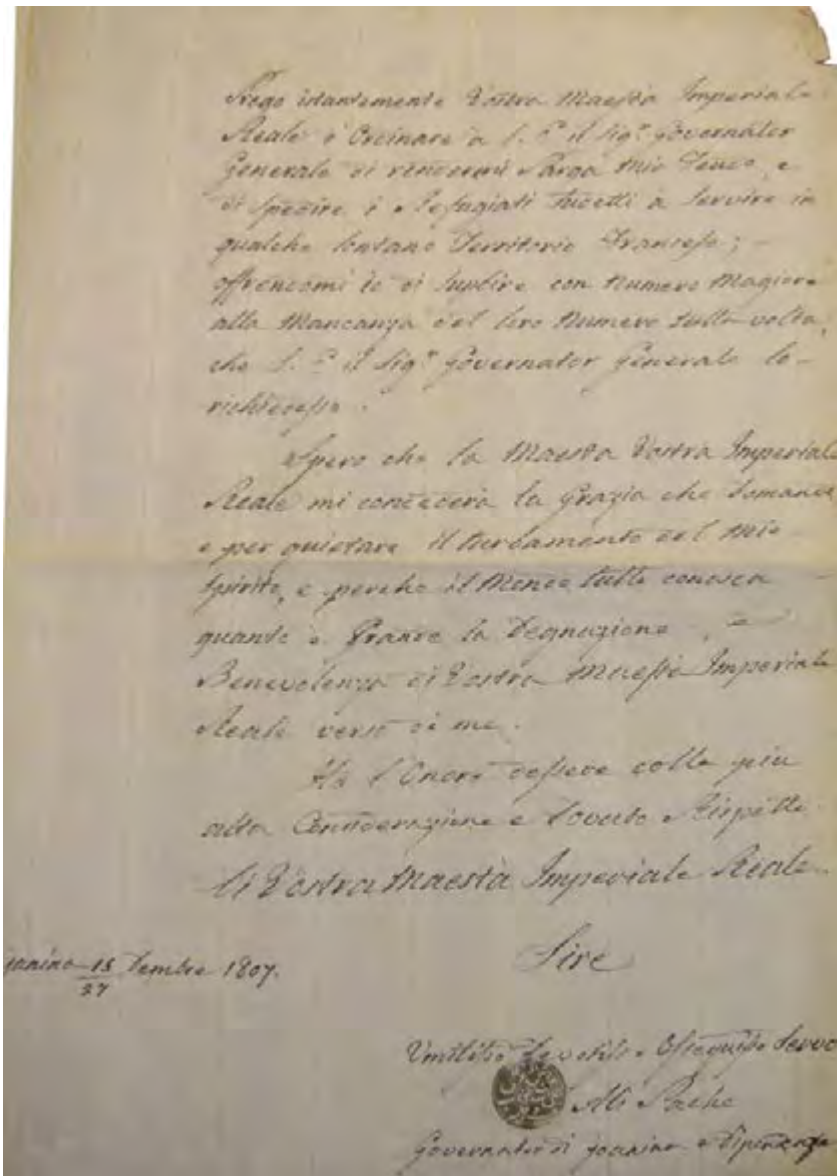 Prego istantemente Vostra Maestà Imperiale
Reale d'Ordinare a S. E. il Sigr. Governator
Generale di rendermi Parga mio Feudo, e
di spedire i Refugiati Succetti a servire in
qualche lontano Territorio Francese; –
offrendomi io di suplire con Numero Magiore
alla Mancanza del loro Numero tutte volte,
che S. E. il Sigr. Governator Generale lo –
richiedesse.
Spero che la Maestà Vostra Imperiale
Reale mi concederà la Grazia che Domando
e per quietare il turbamento del mio –
spirito, e perche il Mondo tutto conosca –
quanto è Grande la Degnazione, e
Benevolenza di Vostra Maestà Imperiale
Reale verso di me.
Ho l'Onore d'essere colla piu
alta Considerazione e dovuto Rispetto
Di Vostra Maestà Imperiale Reale
Sire
Janina 15/27 Dembre 1807.
Umilissimo Devotissimo Ossequioso Servo
Ali Pacha
Governator di Joanina e Dipendenze